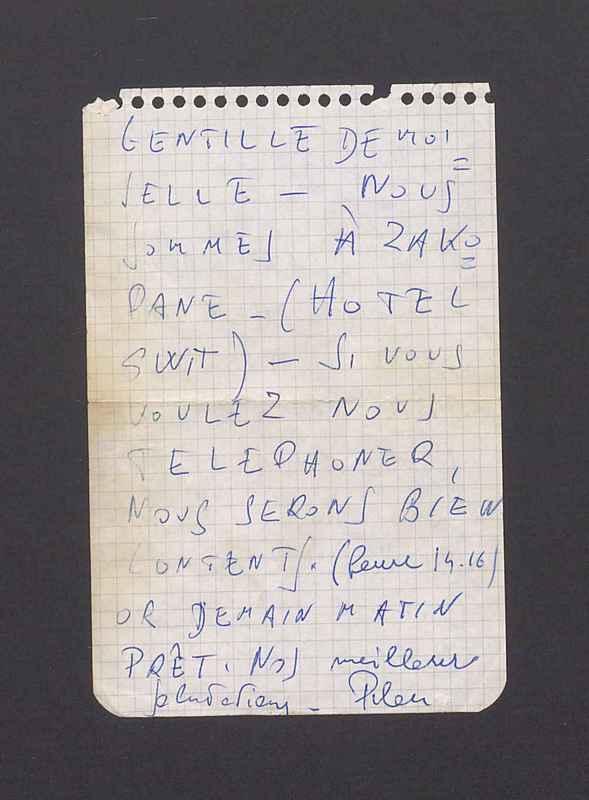 GENTILLE DEMOI=
SELLE — NOUS
SOMMES À ZAKO=
PANE - (HOTEL
SWIT) — SI VOUS
VOULEZ NOUS
TELEPHONER,
NOUS SERONS BIEN
CONTENTS. (heure 14.16)
OR DEMAIN MATIN
PRÊT. NOS meilleurs